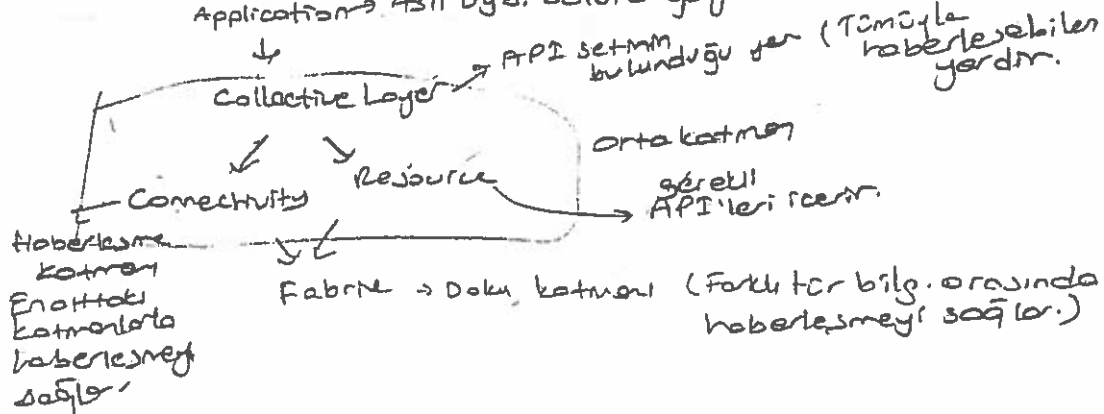 Application → Asıl
↓
Collective Layer → API setinin
bulunduğu yer (Tümüyle
haberleşebilen
yerdir.
Connectivity
Resource
orta katman
gerekli
API'leri içerir.
Haberleşme
katmanı
En alttaki
katmanlarla
haberleşmeyi
sağlar.
Fabric → Doku katmanı (Farklı tür bilg. arasında
haberleşmeyi sağlar.)